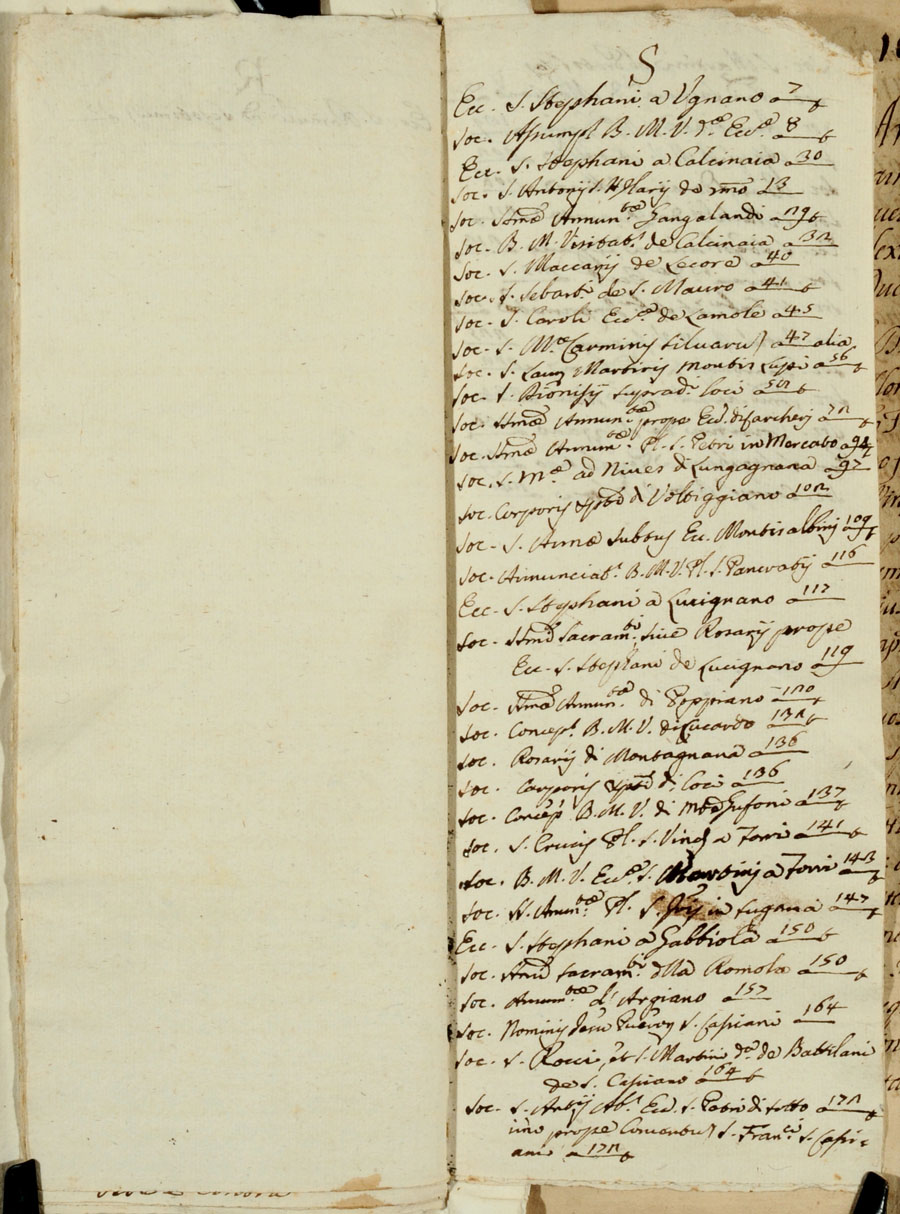 S
Ecc. S. Stephani a Ugnano a 7
Soc. Assumpt. B. M. V. d.ᵃ Ecc.ᵃ 8
Ecc. S. Stephani a Calcinaia a 30
Soc. S. Antonij S. Hylarij de 13
Soc. SS.mæ Annun.tæ Gangalandi a 29
Soc. B. M. Visitat. de Calcinaia a 32
Soc. S. Maccarij de Lecore a 40
Soc. S. Sebast.i de S. Mauro a 41
Soc. S. Caroli Ecc.æ de Lamole a 45
Soc. S. M.æ Carminis Silvarũ a 47 alia
Soc. S. Laur. Martiris Montis Lupi a 56
Soc. S. Dionisij suprad. loci a 52
Soc. SS.mæ Annun.tæ prope Ecc. a 72
Soc. SS.mæ Annun.tæ Pl. S. Petri in Mercato a 94
Soc. S. M.æ ad Nives di Lungagnana a 97
Soc. Corporis Xpti di Voltiggiano a 102
Soc. S. Annæ subtus Ec. Montisalbini 109
Soc. Annunciat. B. M. V. Pl. S. Pancratij 116
Ecc. S. Stephani a Lucignano a 117
Soc. SS.mi Sacram.ti, sive Rosarij prope
Ecc. S. Stephani de Lucignano a 119
Soc. SS.mæ Annun.tæ di Poppiano a 120
Soc. Concept. B. M. V. di Lucardo a 132
Soc. Rosarij di Montagnana a 136
Soc. Corporis Xpti d. loci a 136
Soc. Concep. B. M. V. di a 137
Soc. S. Crucis Pl. S. Vinc. a Torri a 141
Soc. B. M. V. Ecc.æ S. Martini a Torri a 143
Soc. SS. Anun.tæ Pl. S. in Sugana a 147
Ecc. S. Stephani a Gabbiola a 150
Soc. SS.mi Sacram.ti della Romola a 150
Soc. Annun.tæ d' Argiano a 157
Soc. Nominis Jesu S. Casciani a 164
Soc. S. Rocci, et S. Martini d.a de Battilani
de S. Casciano a 164
Soc. S. Antij Ab. Ecc. S. Petri di sotto a 172
imo prope Conventũ S. Fran.ci S. Casci=
ani a 172